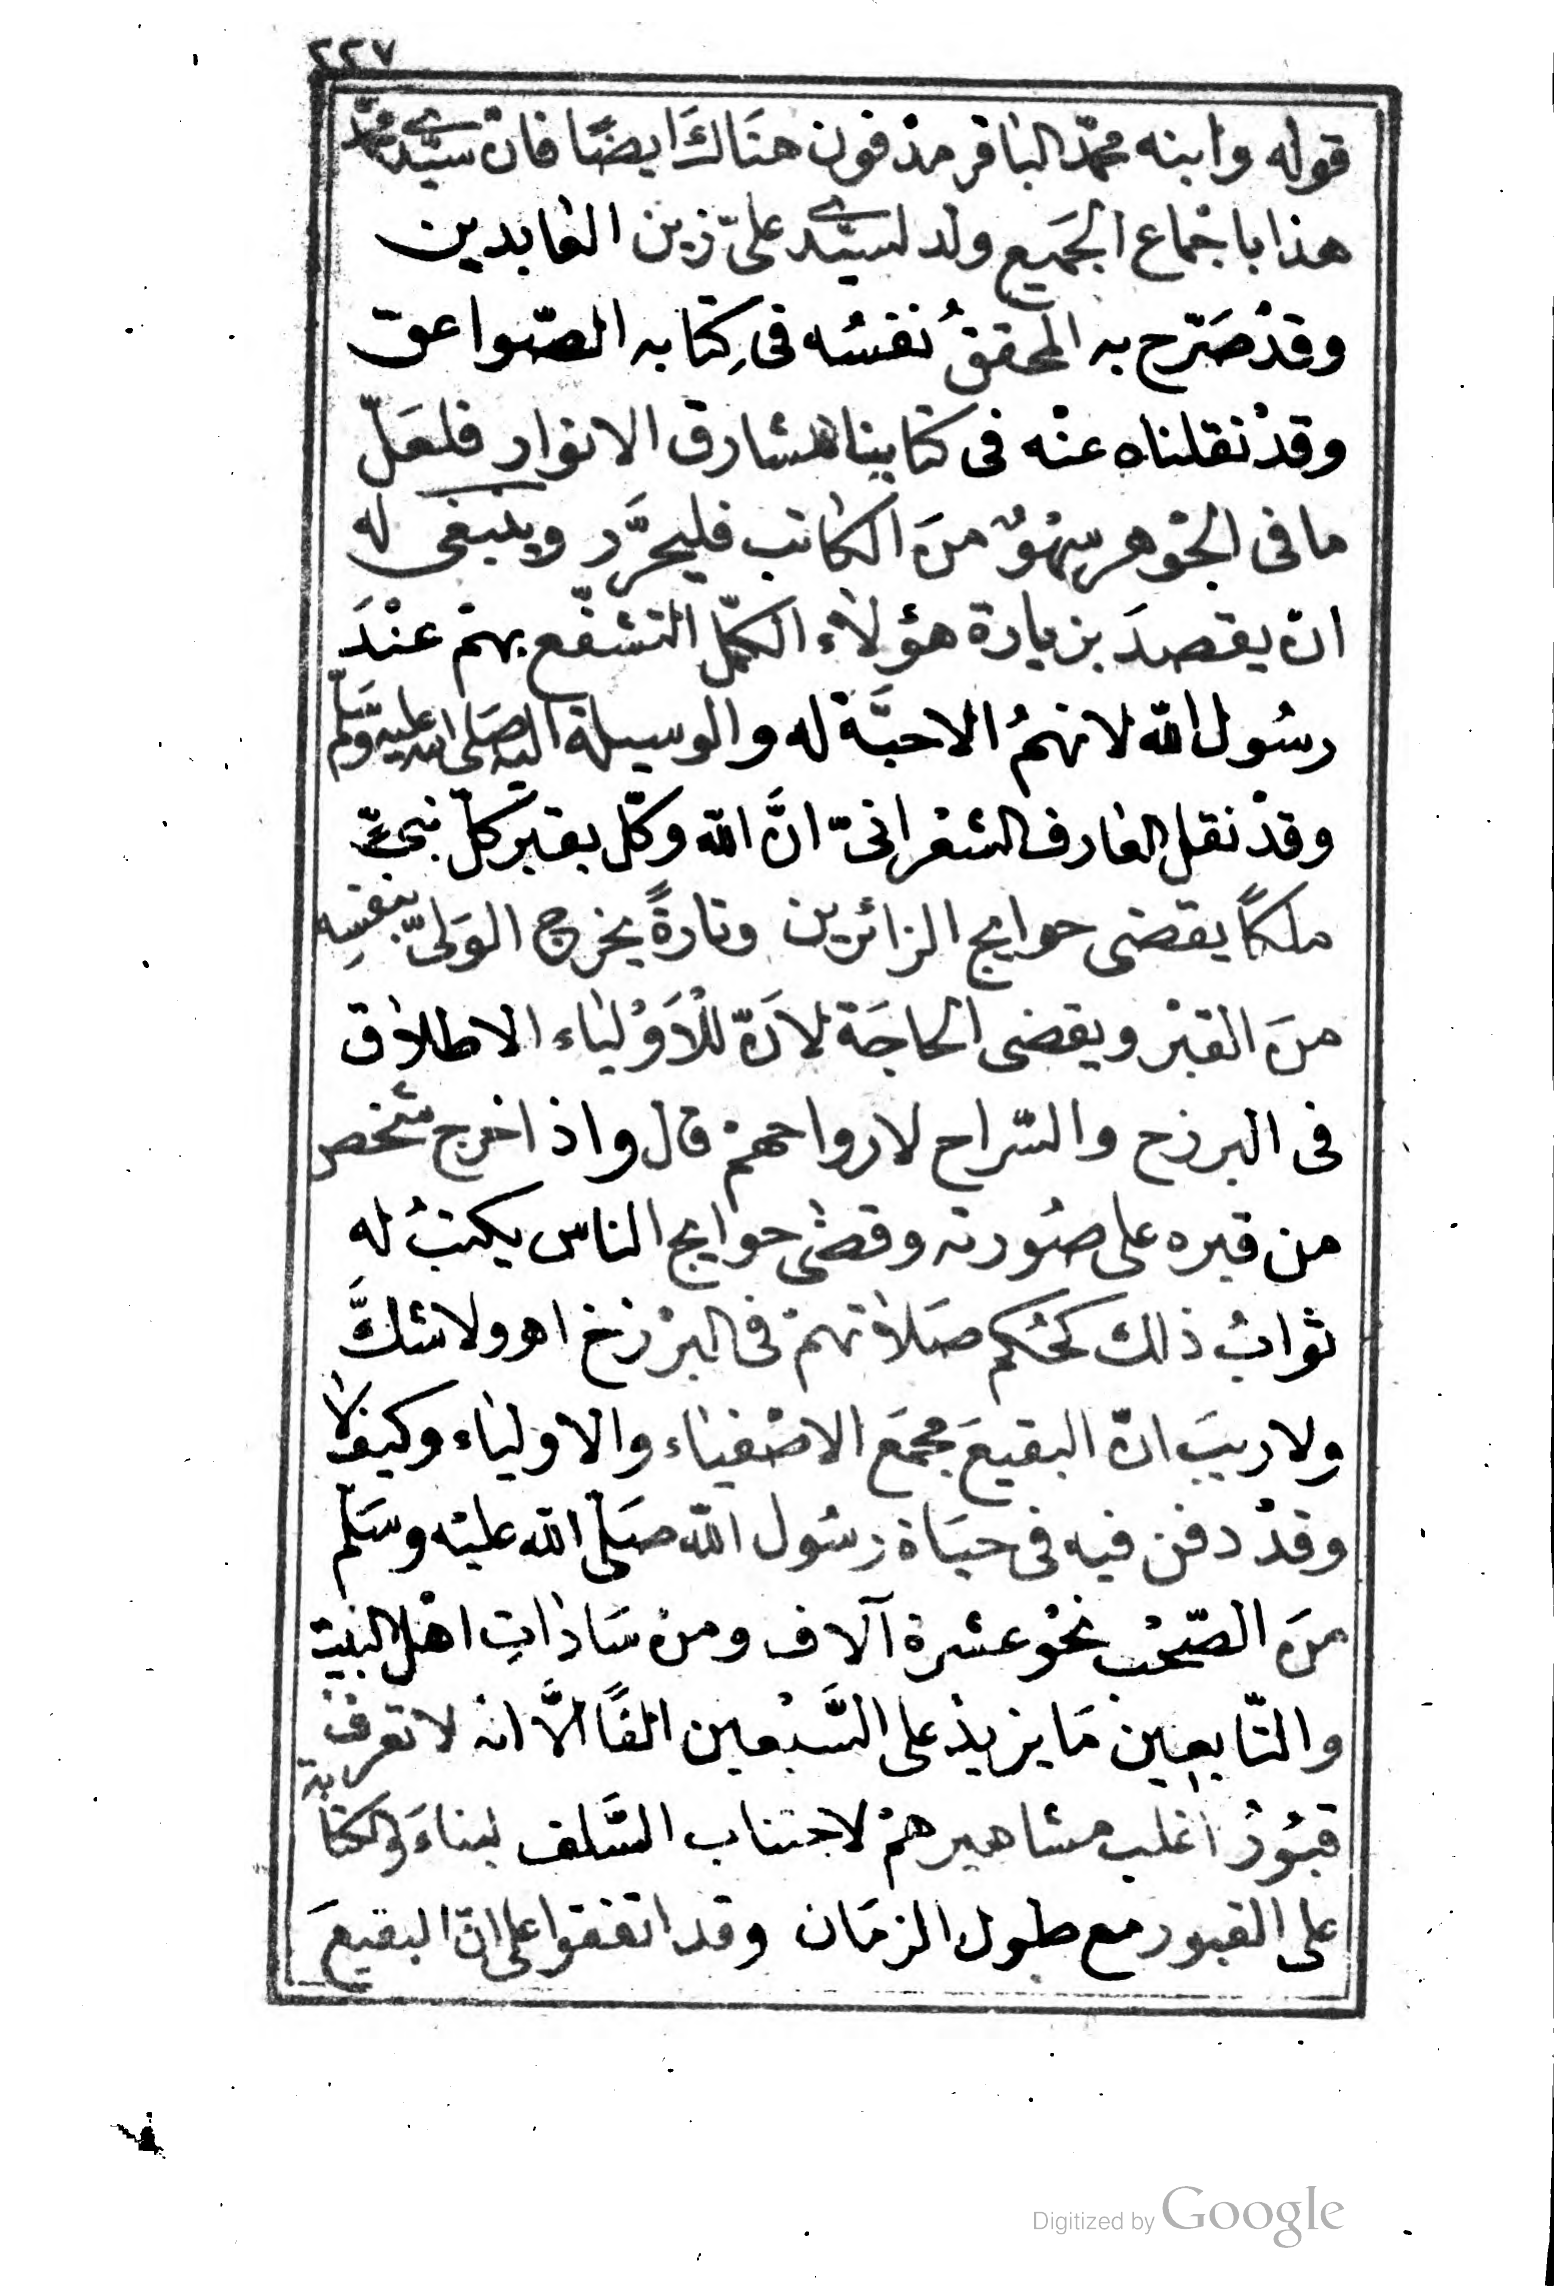 ٢٢٧
قوله وابنه محمّد الباقر مدفون هنَاكَ ايضًا فانّ سيّدي محمّد
هذا باجْماع الجَميع ولد لسَيّدي علىّ زين العٰابدين
وقدْ صَرّح به المحققُ نفسُه فى كِتابه الصّواعق
وقدْ نقلناه عنْه فى كتابنا مشارق الانوار فلعَلّ
ما فى الجَوْهر سَهْوٌ منَ الكٰاتب فليحرَّر وينبغى له
انْ يقصدَ بزيارة هؤلاٰء الكمّل التشفّع بهمْ عنْدَ
رسُول اللّه لانهمُ الاحبَّة له والوسيلة اليه صَلى الله عليه وَسَلّم
وقدْ نقل العٰارف الشعْرانىّ انَّ اللّه وكّل بقبر كلّ نبىّ
ملكًا يقضى حوايج الزائرين وتارةً يخرج الوَلىّ بنفسِه
منَ القبْر ويقضى الحاجَة لاَنّ للْاَوْليٰاء الاطلاٰق
فى البرزخ والسّراح لارواحهمْ قال واذا خرج شخص
من قبره على صُورته وقضٰى حوايج الناس يكتبُ له
ثوابُ ذلك كحُكم صَلاٰتهمْ فى البرْزخ اهـ ولا شكَّ
ولا ريبَ انّ البقيعَ مجمَع الاصْفيٰاء والاوليٰاء وكيف لٰا
وقدْ دفن فيه فى حيَاة رسُول اللّه صَلّى اللّه عليْه وسَلّم
منَ الصّحْب نحْو عشرة آلاف ومنْ سَادٰاتِ اهْل البَيْت
والتّابعين مَا يزيدْ على السَّبْعين الفًا الَّا انه لا تعرف
قبُورُ اغلب مشاهيرهمْ لاجتناب السَّلف لبناءَ والكتابة
على القبور مع طول الزمَان وقد اتفقوا على انّ البقيعَ
Digitized by Google